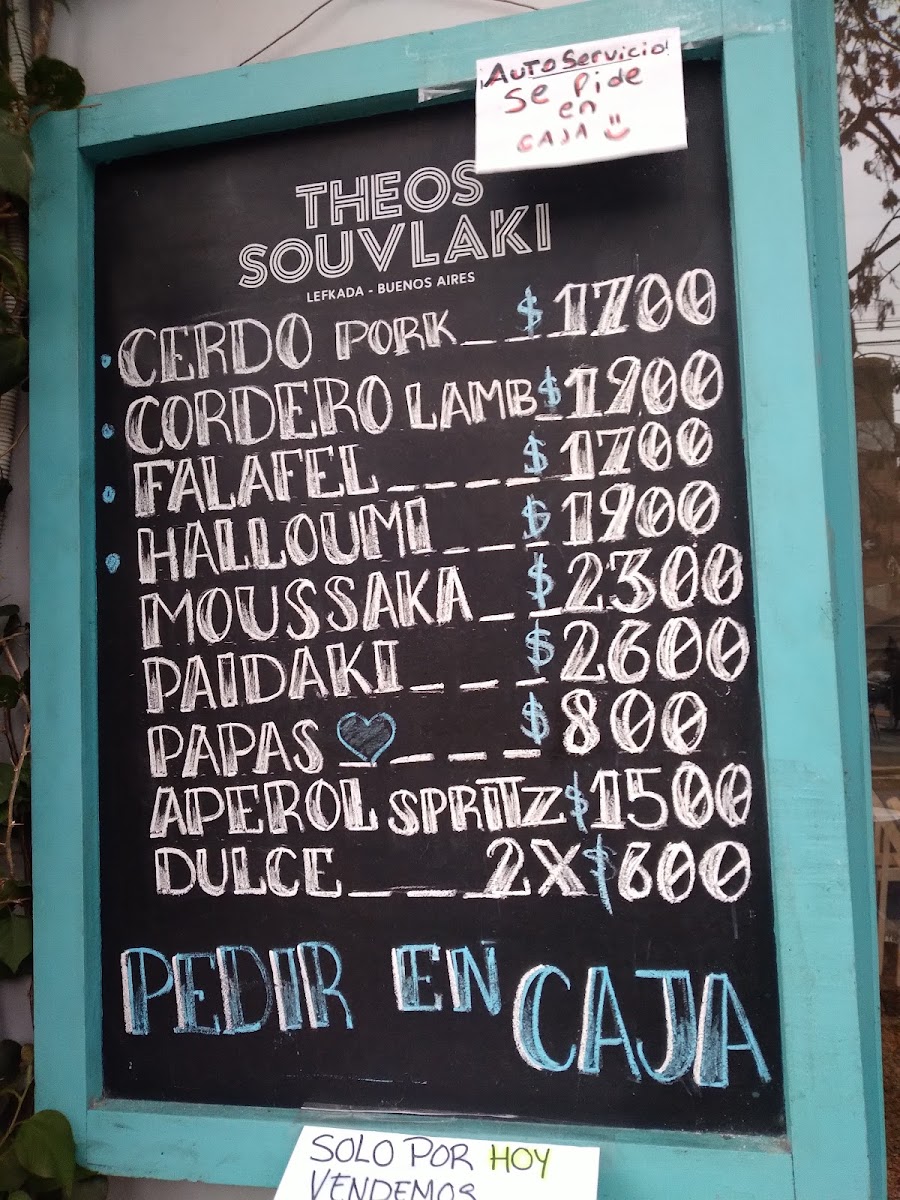 ¡AUTOServicio!
Se Pide
en
CAJA
THEOS
SOUVLAKI
LEFKADA - BUENOS AIRES
CERDO PORK__$1700
CORDERO LAMB$1900
FALAFEL____$1700
HALLOUMI___$1900
MOUSSAKA__$2300
PAIDAKI___$2600
PAPAS____$800
APEROL SPRITZ$1500
DULCE___2X$600
PEDIR EN
CAJA
SOLO POR HOY
VENDEMOS